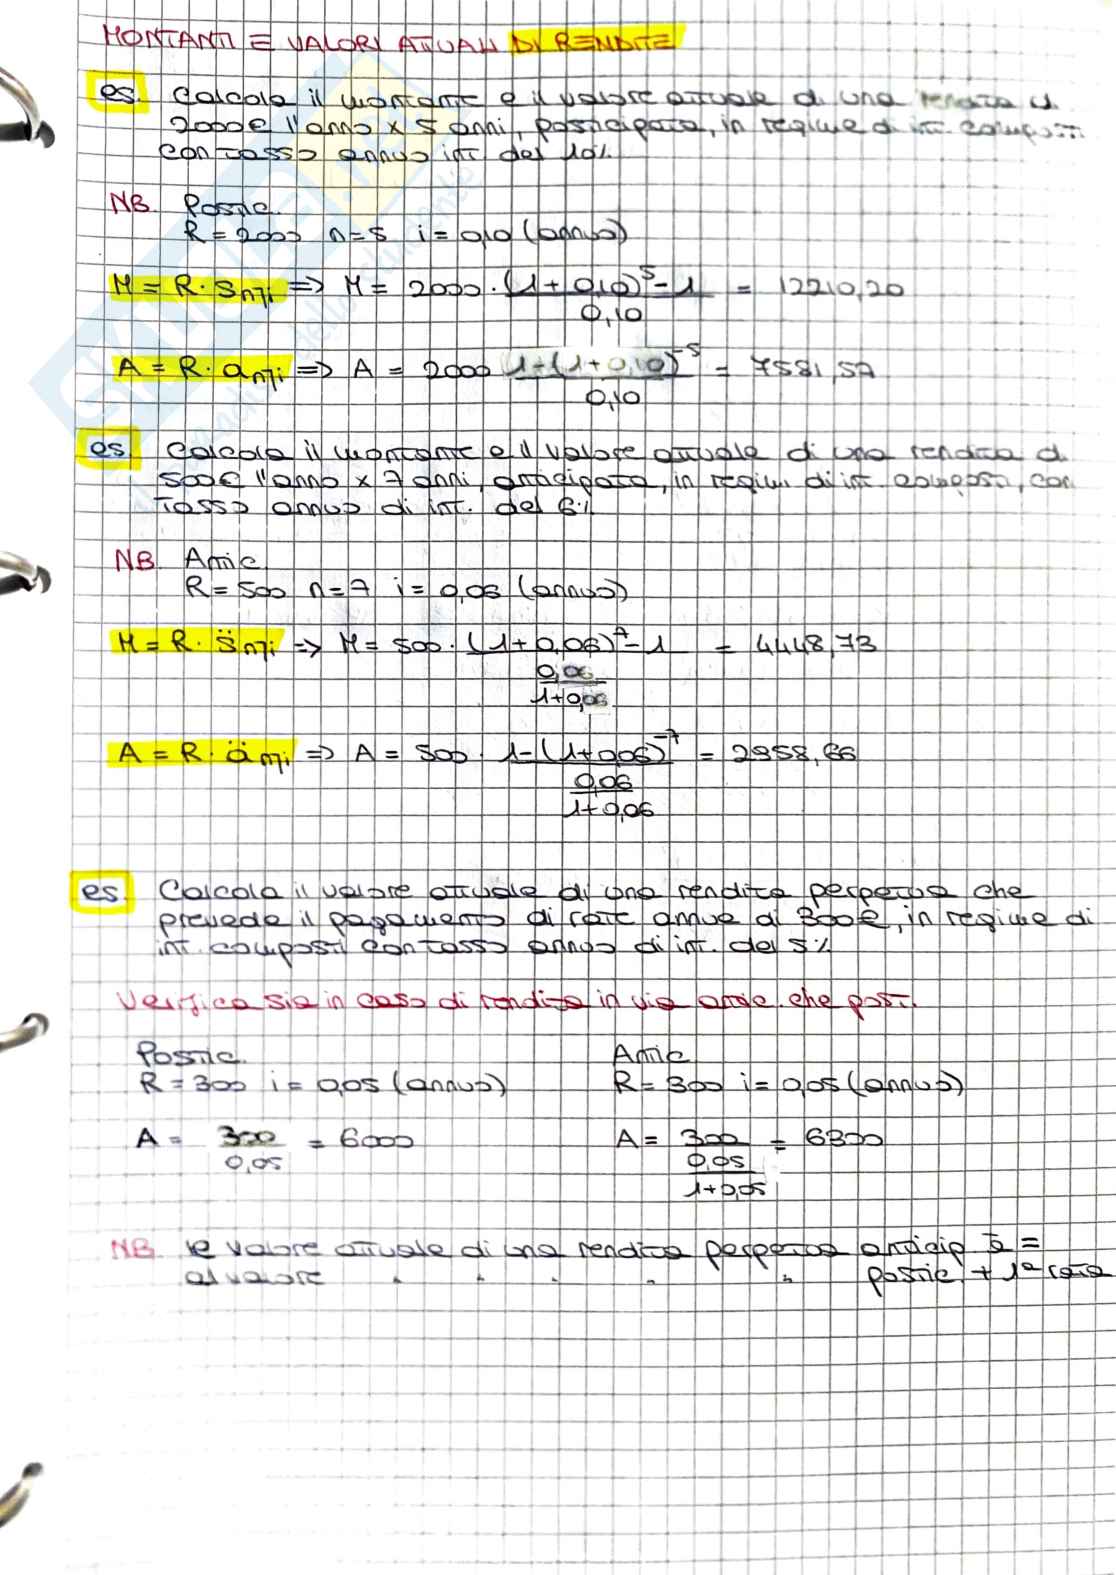 MONTANTI E VALORI ATTUALI DI RENDITE
es. Calcola il montante e il valore attuale di una rendita di
2000€ l'anno x 5 anni, posticipata, in regime di int. composti
con tasso annuo int. del 10%
NB. Postic.
R = 2000 n=5 i = 0,10 (annuo)
M = R · Sn⌉i => M = 2000 · (1 + 0,10)^5 - 1 / 0,10 = 12210,20
A = R · an⌉i => A = 2000 1-(1+0,10)^-5 / 0,10 = 7581,57
es. Calcola il montante e il valore attuale di una rendita di
500€ l'anno x 7 anni, anticipata, in regime di int. composti, con
tasso annuo di int. del 6%
NB. Antic.
R = 500 n=7 i = 0,06 (annuo)
M = R · S̈n⌉i => M = 500 · (1+0,06)^7 - 1 / 0,06 / 1+0,06 = 4448,73
A = R · än⌉i => A = 500 · 1-(1+0,06)^-7 / 0,06 / 1+0,06 = 2958,66
es. Calcola il valore attuale di una rendita perpetua che
prevede il pagamento di rate annue di 300€, in regime di
int. composti con tasso annuo di int. del 5%
Verifica sia in caso di rendita in via antic. che post.
Postic.
R = 300 i = 0,05 (annuo)
A = 300 / 0,05 = 6000
Antic
R = 300 i = 0,05 (annuo)
A = 300 / 0,05 / 1+0,05 = 6300
NB. Il valore attuale di una rendita perpetua anticip è =
al valore " " " " " postic. + 1ª rata